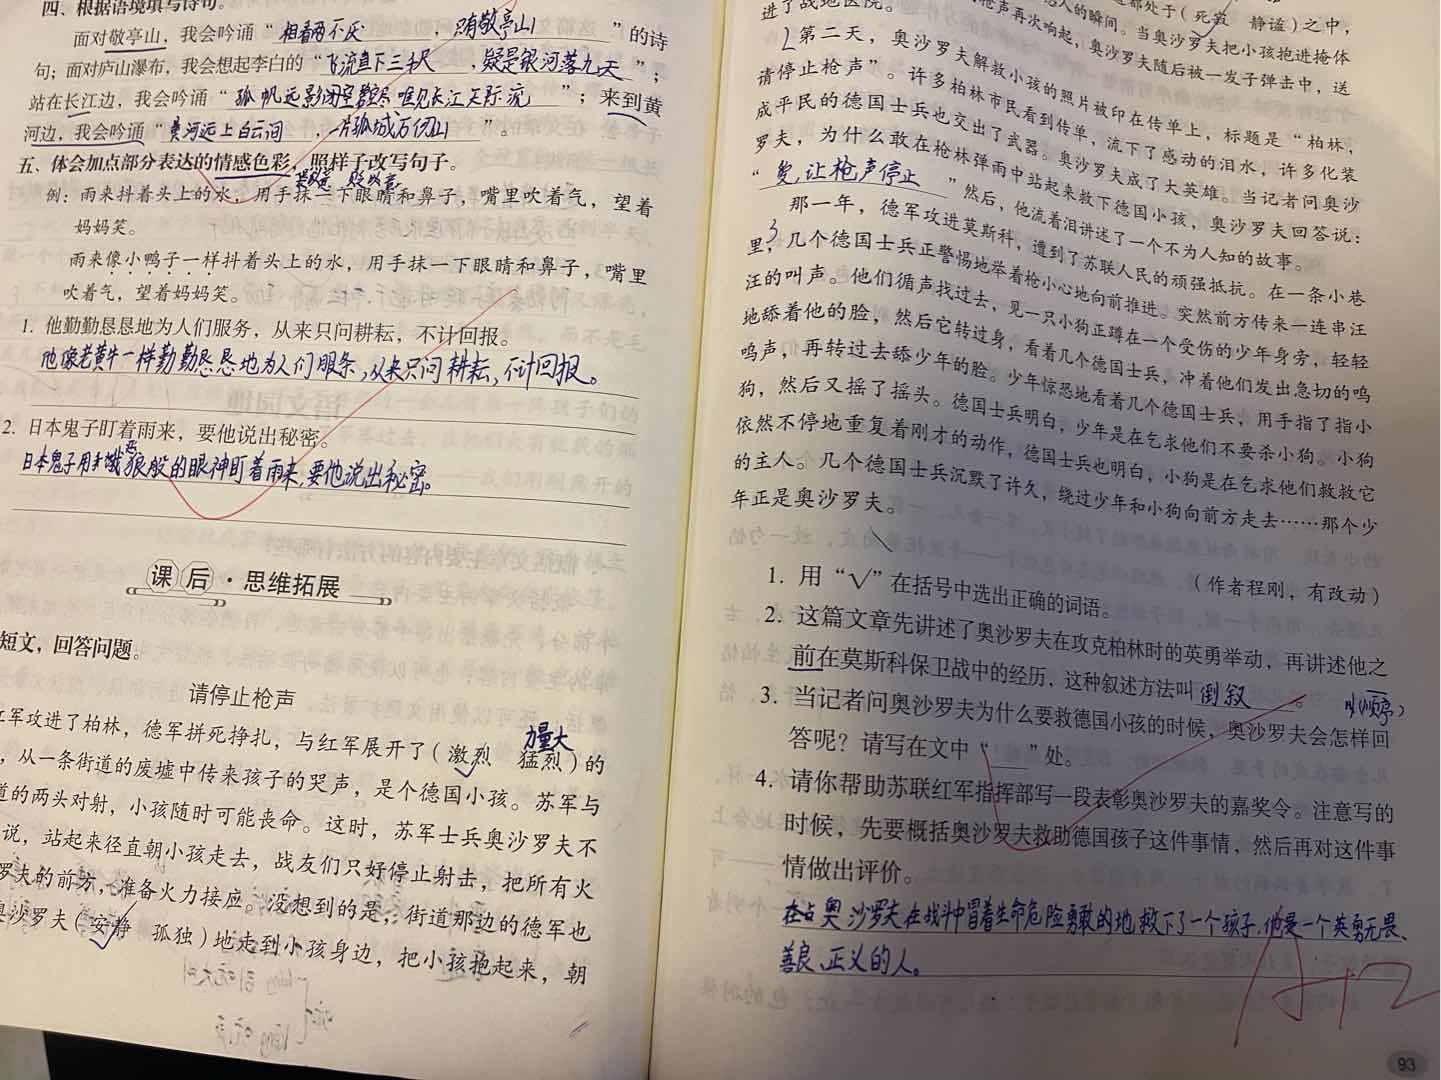 四、根据语境填写诗句。
面对敬亭山，我会吟诵“相看两不厌，只有敬亭山”的诗
句；面对庐山瀑布，我会想起李白的“飞流直下三千尺，疑是银河落九天”；
站在长江边，我会吟诵“孤帆远影碧空尽唯见长江天际流”；来到黄
河边，我会吟诵“黄河远上白云间，一片孤城万仞山”。
五、体会加点部分表达的情感色彩，照样子改写句子。
例：雨来抖着头上的水，用手抹一下眼睛和鼻子，嘴里吹着气，望着
妈妈笑。
雨来像小鸭子一样抖着头上的水，用手抹一下眼睛和鼻子，嘴里
吹着气，望着妈妈笑。
1. 他勤勤恳恳地为人们服务，从来只问耕耘，不计回报。
他像老黄牛一样勤勤恳恳地为人们服务，从来只问耕耘，不计回报。
2. 日本鬼子盯着雨来，要他说出秘密。
日本鬼子用饿狼般的眼神盯着雨来，要他说出秘密。
课后·思维拓展
短文，回答问题。
请停止枪声
红军攻进了柏林，德军拼死挣扎，与红军展开了（激烈 猛烈）的
力量大
，从一条街道的废墟中传来孩子的哭声，是个德国小孩。苏军与
道的两头对射，小孩随时可能丧命。这时，苏军士兵奥沙罗夫不
说，站起来径直朝小孩走去，战友们只好停止射击，把所有火
罗夫的前方，准备火力接应。没想到的是，街道那边的德军也
奥沙罗夫（安静 孤独）地走到小孩身边，把小孩抱起来，朝
都处于（死寂 静谧）之中，
人的瞬间。当奥沙罗夫把小孩抱进掩体
枪声再次响起，奥沙罗夫随后被一发子弹击中，送
进了战地医院。
第二天，奥沙罗夫解救小孩的照片被印在传单上，标题是“柏林，
请停止枪声”。许多柏林市民看到传单，流下了感动的泪水，许多化装
成平民的德国士兵也交出了武器。奥沙罗夫成了大英雄。当记者问奥沙
罗夫，为什么敢在枪林弹雨中站起来救下德国小孩，奥沙罗夫回答说：
“爱，让枪声停止”然后，他流着泪讲述了一个不为人知的故事。
那一年，德军攻进莫斯科，遭到了苏联人民的顽强抵抗。在一条小巷
里，几个德国士兵正警惕地举着枪小心地向前推进。突然前方传来一连串汪
汪的叫声。他们循声找过去，见一只小狗正蹲在一个受伤的少年身旁，轻轻
地舔着他的脸，然后它转过身，看着几个德国士兵，冲着他们发出急切的呜
呜声，再转过去舔少年的脸。少年惊恐地看着几个德国士兵，用手指了指小
狗，然后又摇了摇头。德国士兵明白，少年是在乞求他们不要杀小狗。小狗
依然不停地重复着刚才的动作，德国士兵也明白，小狗是在乞求他们救救它
的主人。几个德国士兵沉默了许久，绕过少年和小狗向前方走去……那个少
年正是奥沙罗夫。
（作者程刚，有改动）
1. 用“√”在括号中选出正确的词语。
2. 这篇文章先讲述了奥沙罗夫在攻克柏林时的英勇举动，再讲述他之
前在莫斯科保卫战中的经历，这种叙述方法叫倒叙。
3. 当记者问奥沙罗夫为什么要救德国小孩的时候，奥沙罗夫会怎样回
答呢？请写在文中“ ”处。
4. 请你帮助苏联红军指挥部写一段表彰奥沙罗夫的嘉奖令。注意写的
时候，先要概括奥沙罗夫救助德国孩子这件事情，然后再对这件事
情做出评价。
奥沙罗夫在战斗中冒着生命危险勇敢的地救下了一个孩子，他是一个英勇无畏、
善良、正义的人。
A+2
93